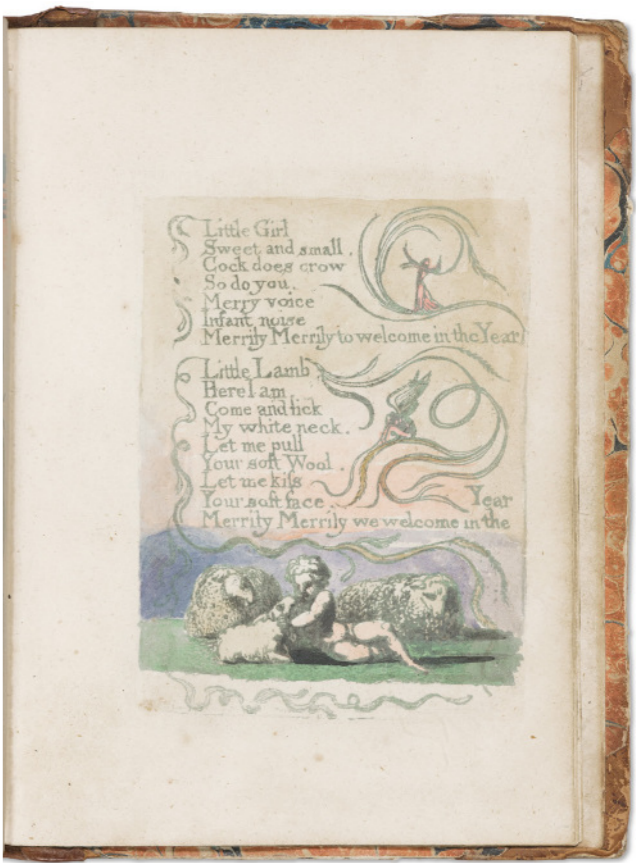 Little Girl
Sweet and small.
Cock does crow
So do you.
Merry voice
Infant noise
Merrily Merrily to welcome in the Year
Little Lamb
Here I am,
Come and lick
My white neck.
Let me pull
Your soft Wool.
Let me kiss
Your soft face
Year
Merrily Merrily we welcome in the